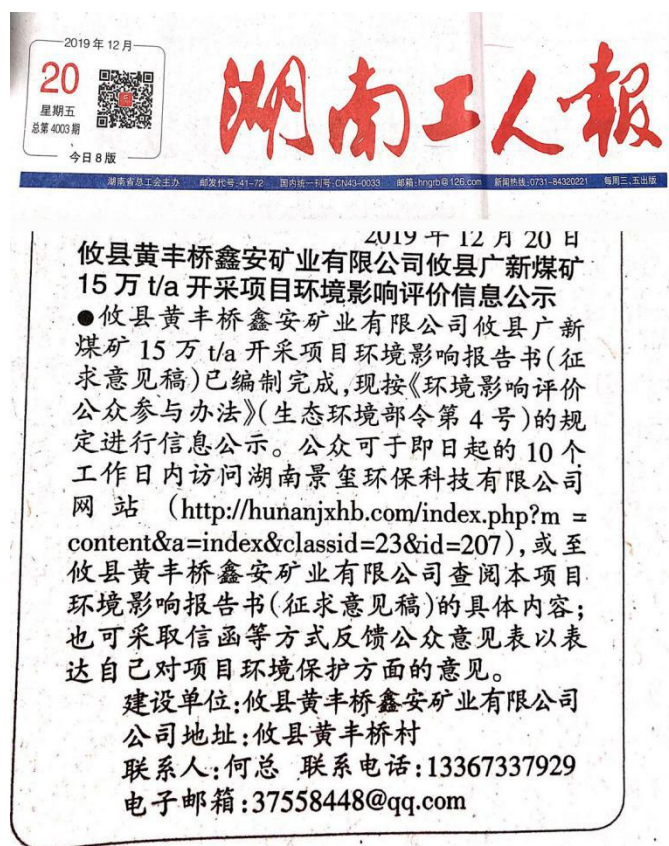 2019年12月
20
星期五
总第4003期
今日8版
湖南工人报
湖南省总工会主办 邮发代号:41-72 国内统一刊号:CN43-0033 邮箱:hngrb@126.com 新闻热线:0731-84320221 每周三、五出版
2019年12月20日
攸县黄丰桥鑫安矿业有限公司攸县广新煤矿
15万t/a开采项目环境影响评价信息公示
●攸县黄丰桥鑫安矿业有限公司攸县广新
煤矿15万t/a开采项目环境影响报告书(征
求意见稿)已编制完成,现按《环境影响评价
公众参与办法》(生态环境部令第4号)的规
定进行信息公示。公众可于即日起的10个
工作日内访问湖南景玺环保科技有限公司
网站 (http://hunanjxhb.com/index.php?m=
content&a=index&classid=23&id=207),或至
攸县黄丰桥鑫安矿业有限公司查阅本项目
环境影响报告书(征求意见稿)的具体内容;
也可采取信函等方式反馈公众意见表以表
达自己对项目环境保护方面的意见。
建设单位:攸县黄丰桥鑫安矿业有限公司
公司地址:攸县黄丰桥村
联系人:何总 联系电话:13367337929
电子邮箱:37558448@qq.com